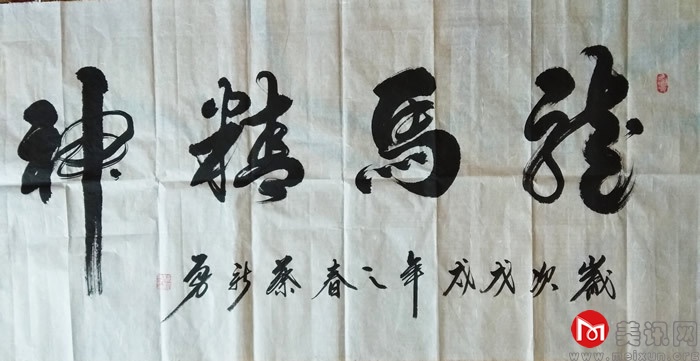 龍馬精神
歲次戊戌年之春蔡新勇
美讯网
www.meixun.org